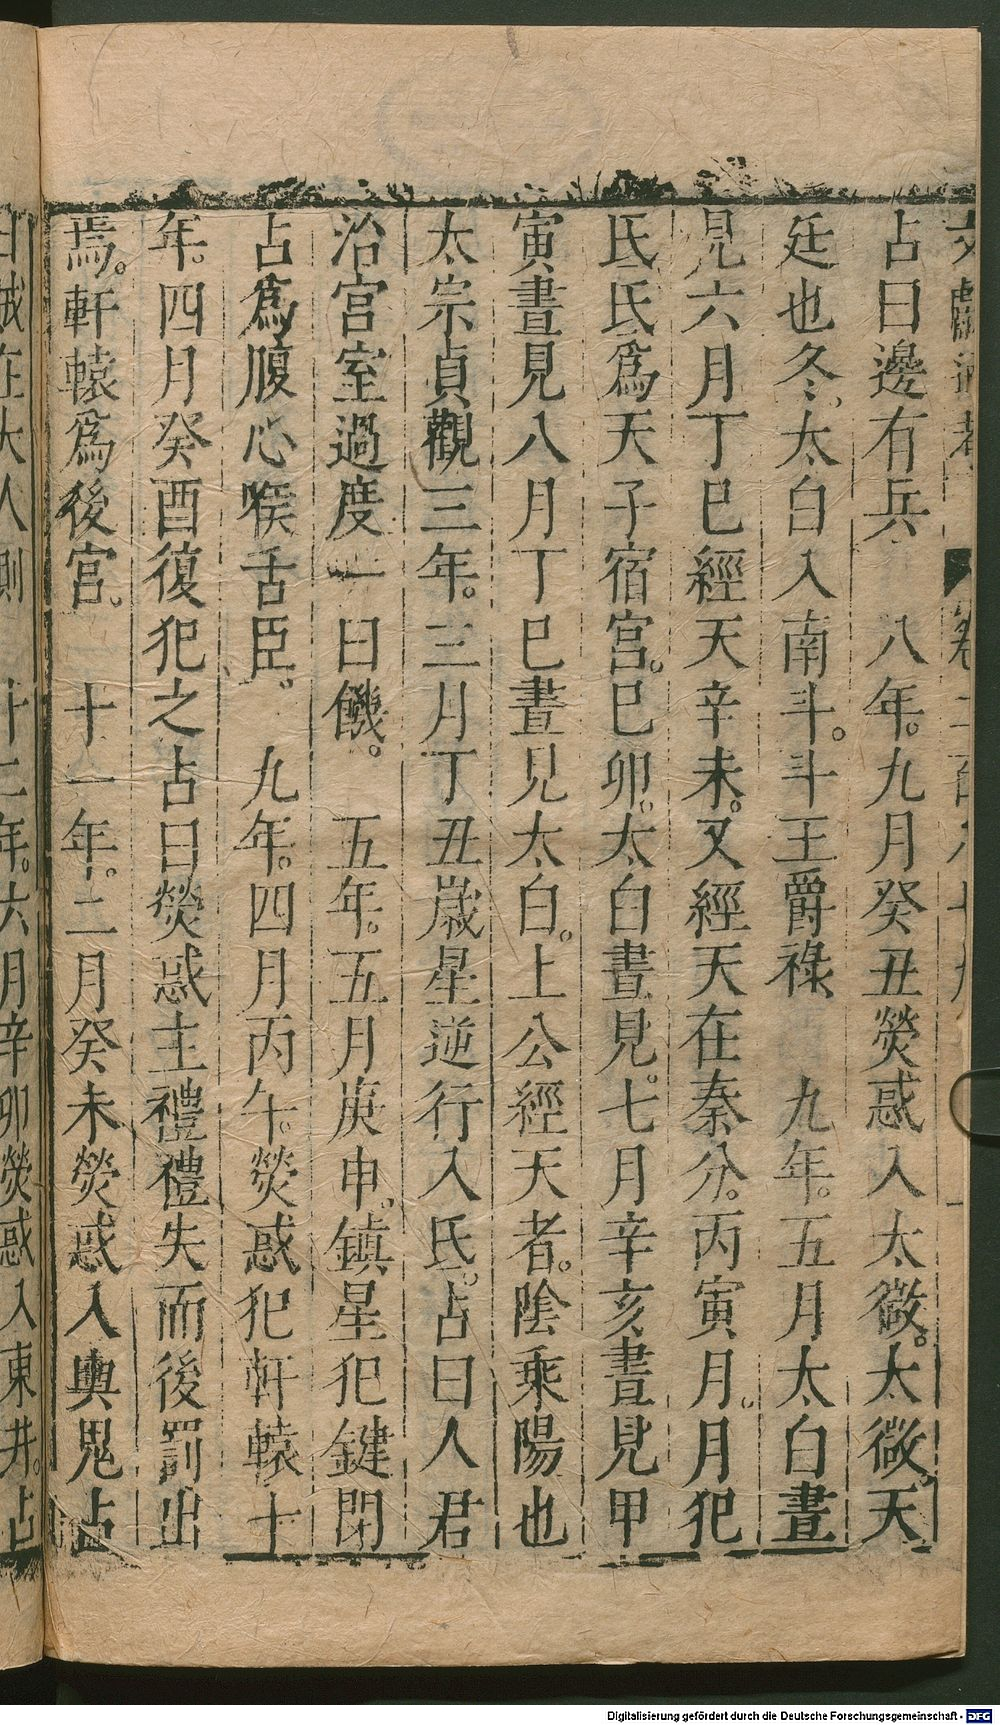 占曰邊有兵　八年。九月癸丑熒惑入太微。太微。天
廷也冬。太白入南斗。斗王爵祿　九年。五月太白晝
見六月丁巳經天辛未。又經天在秦分。丙寅月。月犯
氐氐爲天子宿宮。巳卯。太白晝見。七月辛亥晝見甲
寅晝見八月丁巳晝見太白。上公經天者。陰乘陽也
太宗貞觀三年。三月丁丑歲星逆行入氐。占曰人君
治宮室過度一曰饑。　五年。五月庚申。鎮星犯鍵閉
占爲腹心喉舌臣。　九年。四月丙午。熒惑犯軒轅十
年。四月癸酉復犯之占曰熒惑主禮禮失而後罰出
焉。軒轅爲後宮。　十一年。二月癸未熒惑入輿鬼占
曰賊在大人側　十二年。六月辛卯熒惑入東井。占
Digitalisierung gefördert durch die Deutsche Forschungsgemeinschaft - DFG